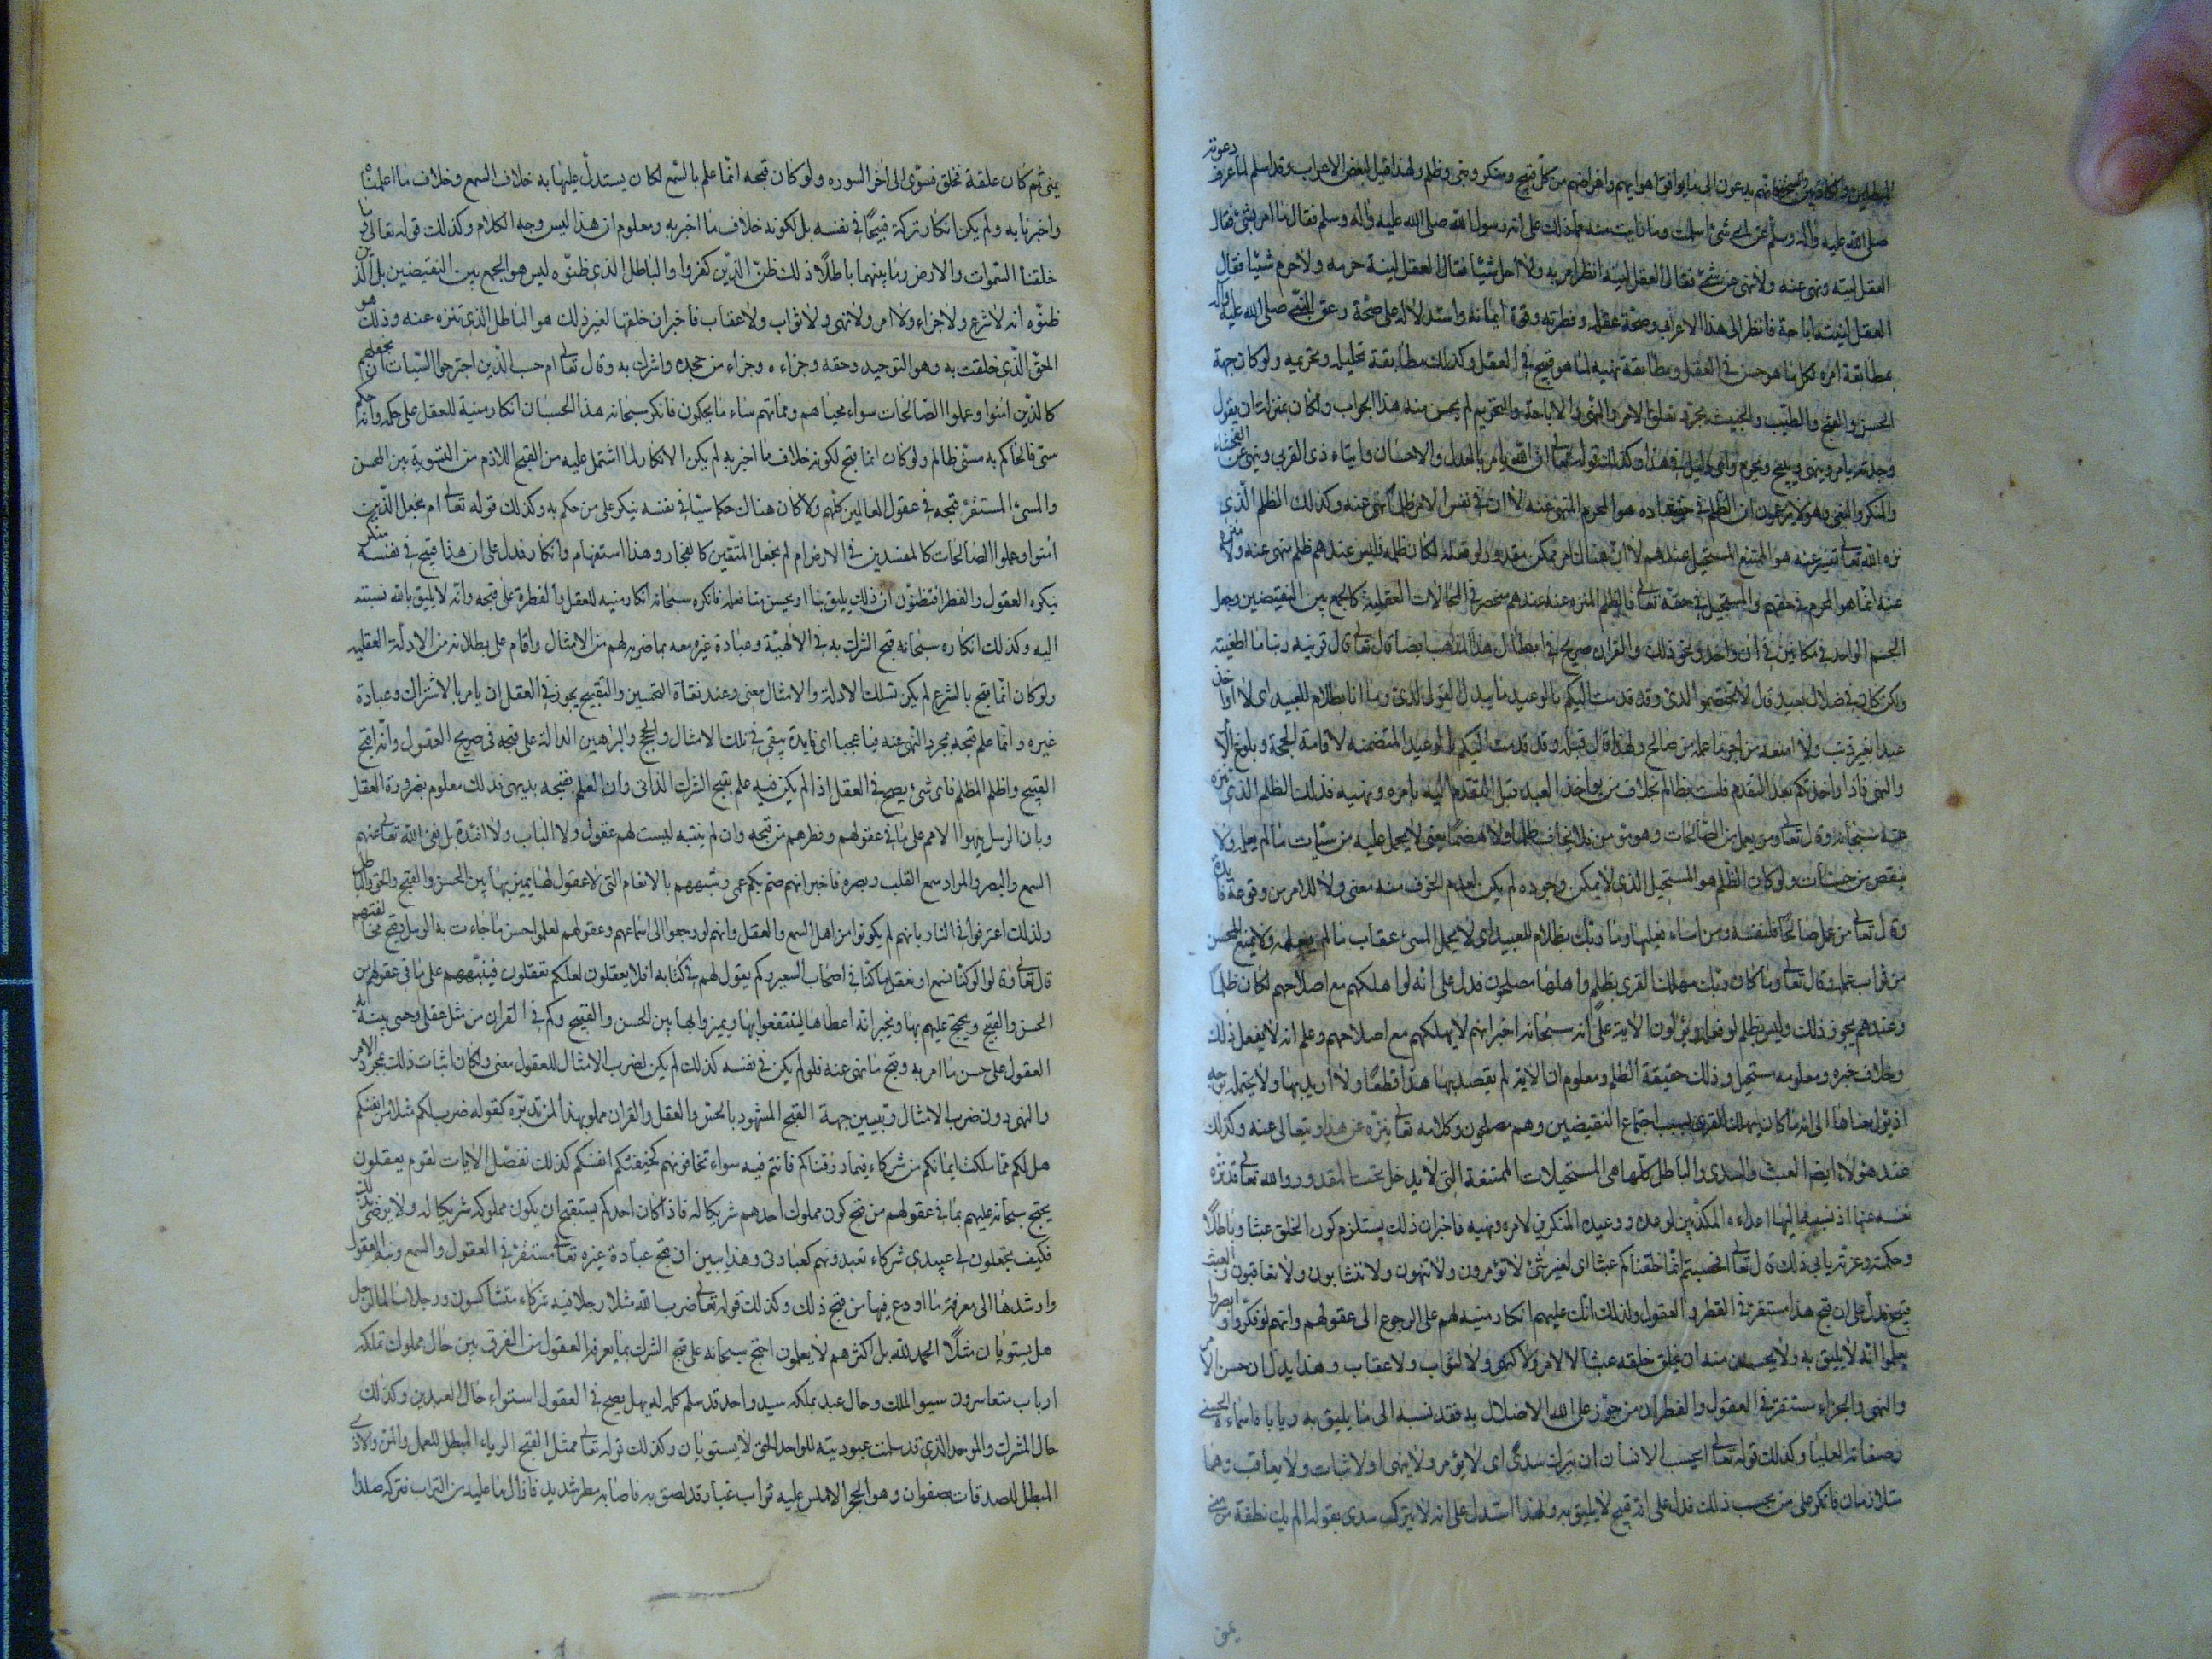 دعوته
المبطلين والكاذبين والسحرة انهم يدعون الى ما يوافق اهوايهم واغراضهم من كل قبيح ومنكر وبغى وظلم ولهذا قيل لبعض الاعراب وقد اسلم لما عرف
صلى الله عليه واله وسلم عن اى شئ اسلمت وما رايت منه مما دلك على انه رسول الله صلى الله عليه واله وسلم فقال ما امر بشئ فقال
العقل ليته ونهى عنه ولا نهى عن شئ فقال العقل ليته امر به ولا احل شيئا فقال العقل ليته حرمه ولا حرم شيئا فقال
العقل ليته اباحة فانظر الى هذا الاعرابى وصحة عقله وفطرته وقوة ايمانه واستدلاله على صحة دعوى النبى صلى الله عليه واله
بمطابقة امره لكل ما هو حسن فى العقل ومطابقة نهيه لما هو قبيح فى العقل وكذلك مطابقة تحليله وتحريمه ولو كان جهة
الحسن والقبح والطيب والخبيث مجرد تعلق الامر والنهى والاباحة والتحريم لم يحسن منه هذا الجواب ولكان بمنزلة ان يقول
وجدته يامر وينهى ويبيح ويحرم واى دليل فى هذا وكذلك قوله تعالى ان الله يامر بالعدل والاحسان وايتاء ذى القربى وينهى عن الفحشاء
والمنكر والبغى وهولاء يزعمون ان الظلم فى حق عباده هو المحرم المنهى عنه لا ان فى نفس الامر ظلما نهى عنه وكذلك الظلم الذى
نزه الله تعالى نفسه عنه هو الممتنع المستحيل عندهم لا ان هناك امر ممكن مقدور لو فعله لكان ظلما فليس عندهم ظلم منهى عنه ولا منزه
عنه انما هو المحرم فى حقهم والمستحيل فى حقه تعالى فالظلم المنزه عنه عندهم منحصر فى المحالات العقلية كالجمع بين النقيضين وجعل
الجسم الواحد فى مكانين فى ان واحد ونحو ذلك والقران صريح فى ابطال هذا المذهب ايضا قال تعالى قال قرينه ربنا ما اطغيته
ولكن كان فى ضلال بعيد قال لا تختصموا لدى وقد قدمت اليكم بالوعيد ما يبدل القول لدى وما انا بظلام للعبيد اى لا اواخذ
عبدا بغير ذنب ولا امنعه من اجر ما عمله من صالح ولهذا قال قبله وقد قدمت اليكم بالوعيد المتضمنه لاقامة الحجة وبلوغ الامر
والنهى فاذا واخذتكم بعد التقدم فلست بظالم بخلاف من يواخذ العبد قبل التقدم اليه بامره ونهيه فذلك الظلم الذى تنزه
عنه سبحانه وقال تعالى ومن يعمل من الصالحات وهو مومن فلا يخاف ظلما ولا هضما يعنى لا يحمل عليه من سيئات ما لم يعمله ولا
ينقص من حسنات ولو كان الظلم هو المستحيل الذى لا يمكن وجوده لم يكن لعدم الخوف منه معنى ولا للامن من وقوعه فايدة
وقال تعالى من عمل صالحا فلنفسه ومن اساء فعليها وما ربك بظلام للعبيد اى لا يحمل المسئ عقاب ما لم يعمله ولا يمنع المحسن
من ثواب عمله وقال تعالى وما كان ربك مهلك القرى بظلم واهلها مصلحون فدل على انه لو اهلكهم مع اصلاحهم لكان ظلما
وعندهم يجوز ذلك وليس بظلم لو فعل ويؤلون الاية على انه سبحانه اخبر انهم لا يهلكهم مع اصلاحهم وعلم انه لا يفعل ذلك
وخلاف خبره ومعلومه مستحيل وذلك حقيقة الظلم ومعلوم ان الاية لم يقصد بها هذا قطعا ولا اريد بها ولا يحتمله بوجه
اذ يؤل معناها الى انه ما كان ليهلك القرى بسبب اجتماع النقيضين وهم مصلحون وكلامه تعالى يتنزه عن هذا ويتعالى عنه وكذلك
عند هؤلاء ايضا العبث والسدى والباطل كلها هى المستحيلات الممتنعة التى لا يدخل تحت المقدور والله تعالى قد نزه
نفسه عنها اذ نسبها اليها اعداءه المكذبين لوعده ووعيده المنكرين لامره ونهيه فاخبر ان ذلك يستلزم كون الخلق عبثا وباطلا
وحكمته وعزته يابى ذلك قال تعالى افحسبتم انما خلقناكم عبثا اى لغير شئ لا تؤمرون ولا تنهون ولا تثابون ولا تعاقبون والعبث
قبيح فدل على ان قبح هذا مستقرة فى الفطر والعقول ولذلك انكر عليهم انكار منبه لهم على الرجوع الى عقولهم وانهم لو فكروا وابصروا
يعلموا انه لا يليق به ولا يحسن منه ان يخلق خلقه عبثا لا لامر ولا لنهى ولا لثواب ولا عقاب وهذا يدل ان حسن الامر
والنهى والجزاء مستقرة فى العقول والفطر ان من جوز على الله الاضلال به فقد نسبه الى ما يليق به ويا باه اسماءه الحسنى
وصفاته العليا وكذلك قوله تعالى ايحسب الانسان ان يترك سدى اى لا يؤمر ولا ينهى او لا يثاب ولا يعاقب وهما
متلازمان فانكر على من يحسب ذلك فدل على انه قبيح لا يليق به ولهذا استدل على انه لا يترك سدى بقوله الم يك نطفة من منى
يمنى
يمنى ثم كان علقة فخلق فسوى الى اخر السوره ولو كان قبحه انما علم بالسمع لكان يستدل عليها به خلاف السمع وخلاف ما اعلمناه
واخبرنا به ولم يكن انكار تركه قبيحا فى نفسه بل لكونه خلاف ما اخبر به ومعلوم ان هذا ليس وجه الكلام وكذلك قوله تعالى وما
خلقنا السموات والارض وما بينهما باطلا ذلك ظن الذين كفروا والباطل الذى ظنوه ليس هو الجمع بين النقيضين بل الذين
ظنوه انه لا شرع ولا جزاء ولا امر ولا نهى ولا ثواب ولا عقاب فاخبر ان خلقها لغير ذلك هو الباطل الذى تنزه عنه وذلك هو
الحق الذى خلقت به وهو التوحيد وحقه وجزاءه وجزاء من جحده واشرك به وقال تعالى ام حسب الذين اجترحوا السيئات ان نجعلهم
كالذين امنوا وعملوا الصالحات سواء محياهم ومماتهم ساء ما يحكمون فانكر سبحانه هذا الحسبان انكار منبه للعقل على حكمه وانه حكم
سئ فالحاكم به مسئ ظالم ولو كان انما قبح لكونه خلاف ما اخبر به لم يكن الانكار لما اشتمل عليه من القبح اللازم من التسوية بين المحسن
والمسئ المستقر قبحه فى عقول العالمين كلهم ولا كان هناك حكما سيئا فى نفسه ينكر على من حكم به وكذلك قوله تعالى ام نجعل الذين
امنوا وعملوا الصالحات كالمفسدين فى الارض ام نجعل المتقين كالفجار وهذا استفهام وانكار فدل على ان هذا قبيح فى نفسه منكر
ينكره العقول والفطر افتظنون ان ذلك يليق بنا او يحسن منا فعله فانكره سبحانه انكار منبه للعقل والفطرة على قبحه وانه لا يليق بالله نسبته
اليه وكذلك انكاره سبحانه قبح الشرك به فى الالهية وعبادة غيره معه بما ضربه لهم من الامثال واقام على بطلانه من الادلة العقليه
ولو كان انما قبح بالشرع لم يكن لتلك الادلة والامثال معنى وعند نفاة التحسين والتقبيح يجوز فى العقل ان يامر بالاشراك وعبادة
غيره وانما علم قبحه بمجرد النهى عنه فيا عجبا اى فايدة يبقى فى تلك الامثال والحجج والبراهين الدالة على قبحه فى صريح العقول وانه اقبح
القبيح واظلم الظلم فاى شئ يصح فى العقل اذا لم يكن فيه علم بقبح الشرك الذاتى وان العلم بقبحه بديهى فذلك معلوم بضرورة العقل
وبان الرسل نبهوا الامم على ما فى عقولهم وفطرهم من قبحه وان لم ينبه ليست لهم عقول ولا الباب ولا افئدة بل نفى الله تعالى عنهم
السمع والبصر والمراد سمع القلب وبصره فاخبر انهم صم بكم عمى وشبههم بالانعام التى لا عقول لها يميز بها بين الحسن والقبح والحق والباطل
ولذلك اعترفوا فى النار بانهم لم يكونوا من اهل السمع والعقل وانهم لو رجعوا الى اسماعهم وعقولهم لعلموا حسن ما جاءت به الرسل وقبح مخالفتهم
قال تعالى وقالوا لو كنا نسمع او نعقل ما كنا فى اصحاب السعير وكم يقول لهم فى كتابه افلا يعقلون لعلكم تعقلون فينبههم على ما فى عقولهم من
الحسن والقبح ويحتج عليهم بها ويخبر انه اعطاها لينتفعوا بها ويميزوا بها بين الحسن والقبيح وكم فى القران من مثل عقلى وحسى ينبه به
العقول على حسن ما امر به وقبح ما نهى عنه فلو لم يكن فى نفسه كذلك لم يكن لضرب الامثال للعقول معنى ولكان اثبات ذلك بمجرد الامر
والنهى دون ضرب الامثال وتبيين جهة القبح المشهود بالحس والعقل والقران مملو بهذا لمن تدبره كقوله ضرب لكم مثلا من انفسكم
هل لكم مما ملكت ايمانكم من شركاء فيما رزقناكم فانتم فيه سواء تخافونهم كخيفتكم انفسكم كذلك نفصل الايات لقوم يعقلون
يحتج سبحانه عليهم بما فى عقولهم من قبح كون مملوك احدهم شريكا له فاذا كان احدكم يستقبح ان يكون مملوكه شريكا له ولا يرضى بذلك
فكيف تجعلون لى عبيدى شركاء تعبدونهم كعبادتى وهذا يبين ان قبح عبادة غيره تعالى مستقرة فى العقول والسمع ونبه العقول
وارشدها الى معرفة ما اودع فيها من قبح ذلك وكذلك قوله تعالى ضرب الله مثلا رجلا فيه شركاء متشاكسون ورجلا سالما لرجل
هل يستويان مثلا الحمد لله بل اكثرهم لا يعلمون احتج سبحانه على قبح الشرك بما يعرفه العقول من الفرق بين حال مملوك تملكه
ارباب متعاسرون سيئوا الملك وحال عبد يملكه سيد واحد قد سلم كله له فهل يصح فى العقول استواء حال العبدين وكذلك
حال المشرك والموحد الذى قد سلمت عبوديته للواحد الحق لا يستويان وكذلك قوله تعالى ممثل القبح الرياء المبطل للعمل والمن والاذى
المبطل للصدقات بصفوان وهو الحجر الاملس عليه تراب غبار قد لصق به فاصابه مطر شديد فازال ما عليه من التراب فتركه صلدا